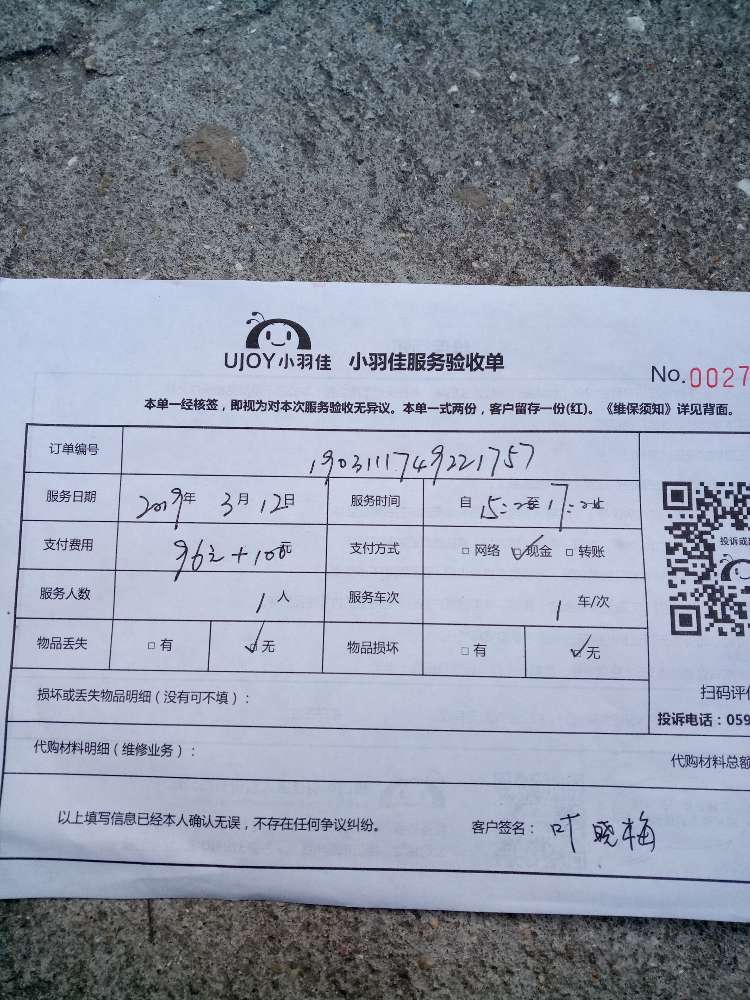 UJOY小羽佳 小羽佳服务验收单
No.0027
本单一经核签，即视为对本次服务验收无异议。本单一式两份，客户留存一份(红)。《维保须知》详见背面。
订单编号 1903111749221757
服务日期 2019年 3月 12日 服务时间 自 15: 至 17:
支付费用 96元+100元 支付方式 □网络 ☑现金 □转账
投诉或
服务人数 1人 服务车次 1车/次
物品丢失 □有 ☑无 物品损坏 □有 ☑无
扫码评
损坏或丢失物品明细（没有可不填）：
投诉电话：059
代购材料明细（维修业务）：
代购材料总额
以上填写信息已经本人确认无误，不存在任何争议纠纷。 客户签名： 叶晓梅